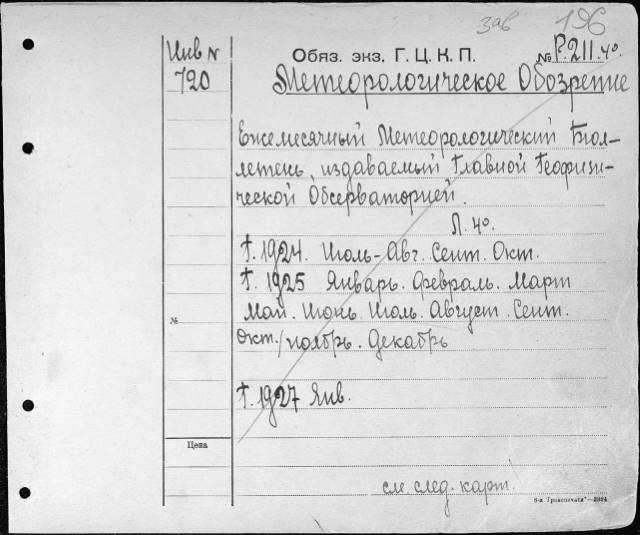 зав 196
Инв N
720
Обяз. экз. Г. Ц. К. П. № Р.211.4º
Метеорологическое Обозрение
Ежемесячный Метеорологический Бюл-
летень, издаваемый Главной Геофизи-
ческой Обсерваторией.
Л. 4º.
Г. 1924. Июль-Авг. Сент. Окт.
Г. 1925 Январь. Февраль. Март
Май. Июнь. Июль. Август. Сент.
№
Окт./ноябрь. Декабрь
Г. 1927 Янв.
Цена
см. след. карт.
6-я „Транспечати"—3984